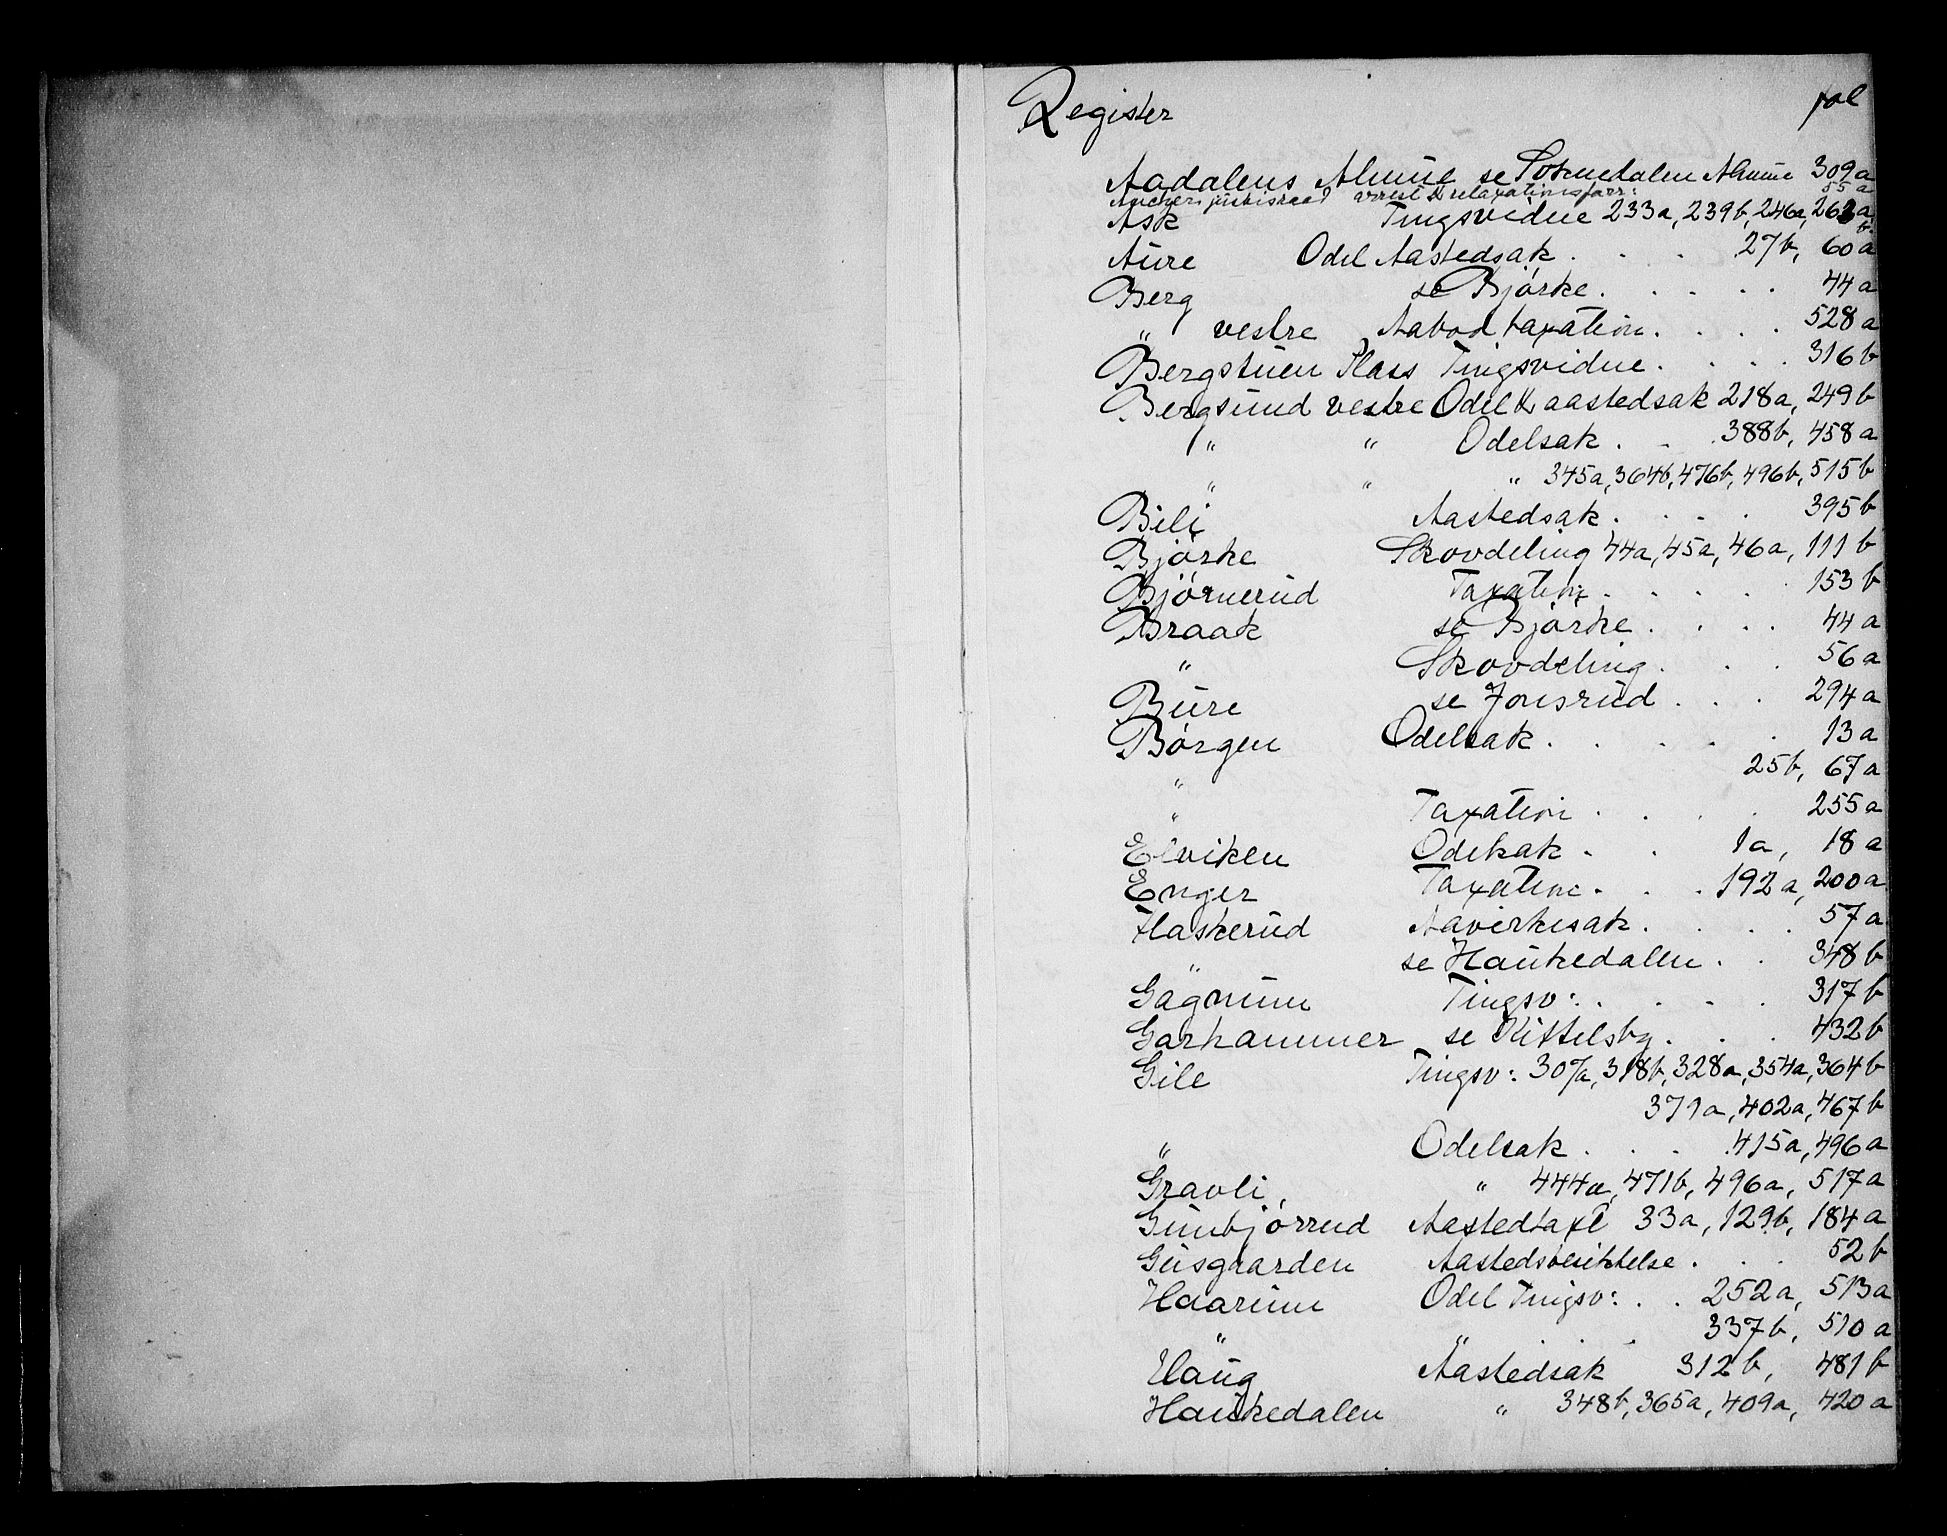 Register fol
Aadalens Almue se Soknedalen Almue 309a
Ancher justisraad arrest & relaxationsforr: 55a
Ask Tingsvidne 233a, 239b, 246a, 263a
Aure Odel Aastedsak . . . . 27b, 60a
Berg se Bjørke . . . . . 44a
" vestre Aabod taxation . . . . 528a
Bergstuen Plass Tingsvidne . . . . 316b
Bergsund vestre Odel & aastedsak 218a, 249b
" " Odelsak . . . 388b, 458a
" " " 345a, 364b, 476b, 496b, 515b
Bili Aastedsak . . . . 395b
Bjørke Skovdeling 44a, 45a, 46a, 111b
Bjørnerud Taxation . . . . . 153b
Braak se Bjørke . . . . 44a
" Skovdeling . . . 56a
Bure se Jonsrud . . . 294a
Børgen Odelsak . . . . . 13a
" 25b, 67a
" Taxation . . . . 255a
Elviken Odelsak . . 1a, 18a
Enger Taxation . . . 192a, 200a
Flaskerud Aavirkesak . . . . 57a
" se Haukedalen . . 348b
Gagnum Tingsv: . . . . . 317b
Garhammer se Kittelsby . . . 432b
Gile Tingsv: 307a, 318b, 328a, 354a, 364b
371a, 402a, 467b
" Odelsak . . . . 415a, 496a
Gravli, " 444a, 471b, 496a, 517a
Gunbjørrud Aastedtaxt 33a, 129b, 184a
Gusgaarden Aastedsbesiktelse . . . 52b
Haarum Odel Tingsv: . . 252a, 513a
" " . . . 337b, 510a
Haug Aastedsak 312b, 481b
Haukedalen " 348b, 365a, 409a, 420a